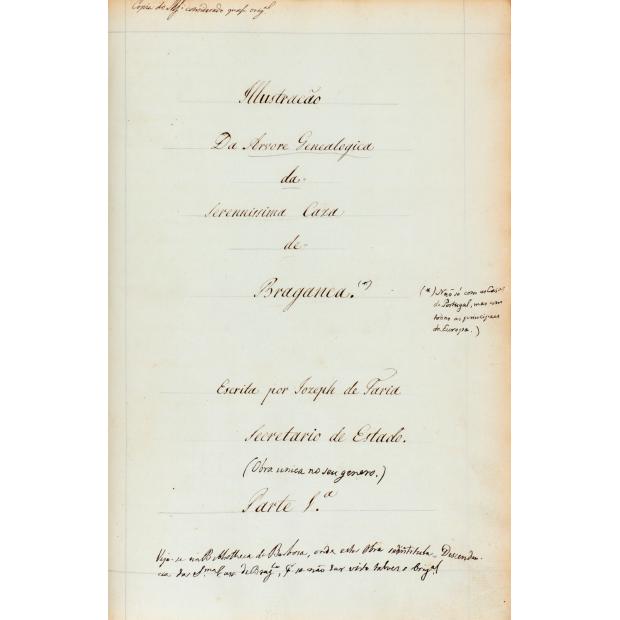 Copia do Ms. considerado quasi orig.al
Illustracão
Da Arvore Genealogica
da
Serenissima Caza
de
Braganca. (*)
(*) Não só com as Cas.
de Portugal, mas com
todas as principaes
da Europa.)
Escrita por Jozeph de Faria
Secretario de Estado.
(Obra unica no seu genero.)
Parte 1.a
Veja-se na Bibliotheca de Barbosa, onde esta Obra se intitula Descenden-
cia da S.ma Caza de Brag.ca, q se não sar visto talvez o Orig.al